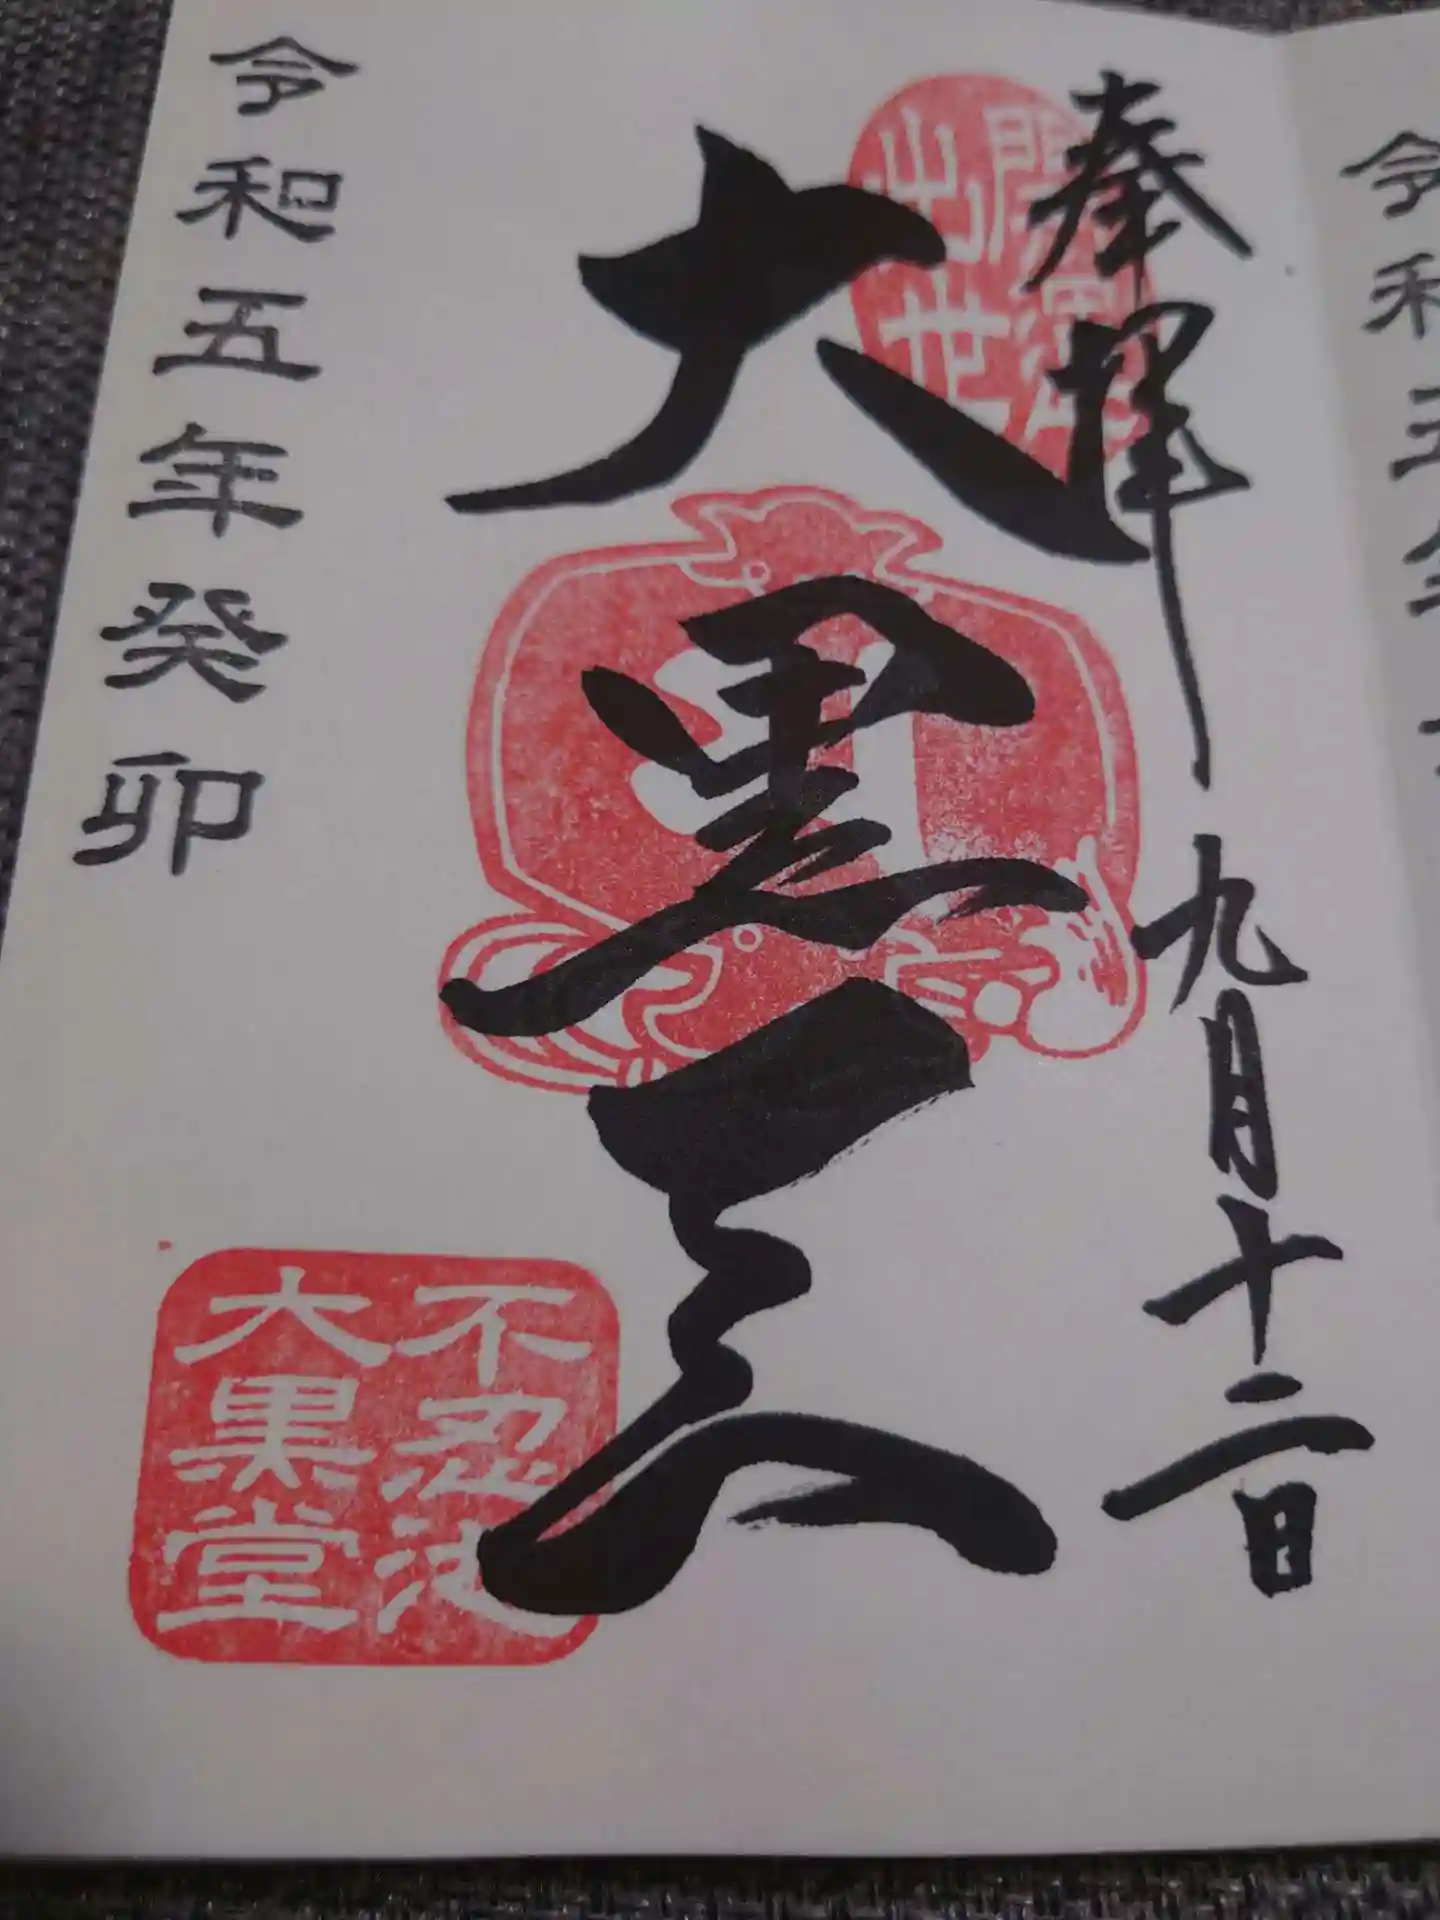 奉拝 九月十二日
大黒天
出世
令和五年癸卯
不忍池
大黒堂
令和五年